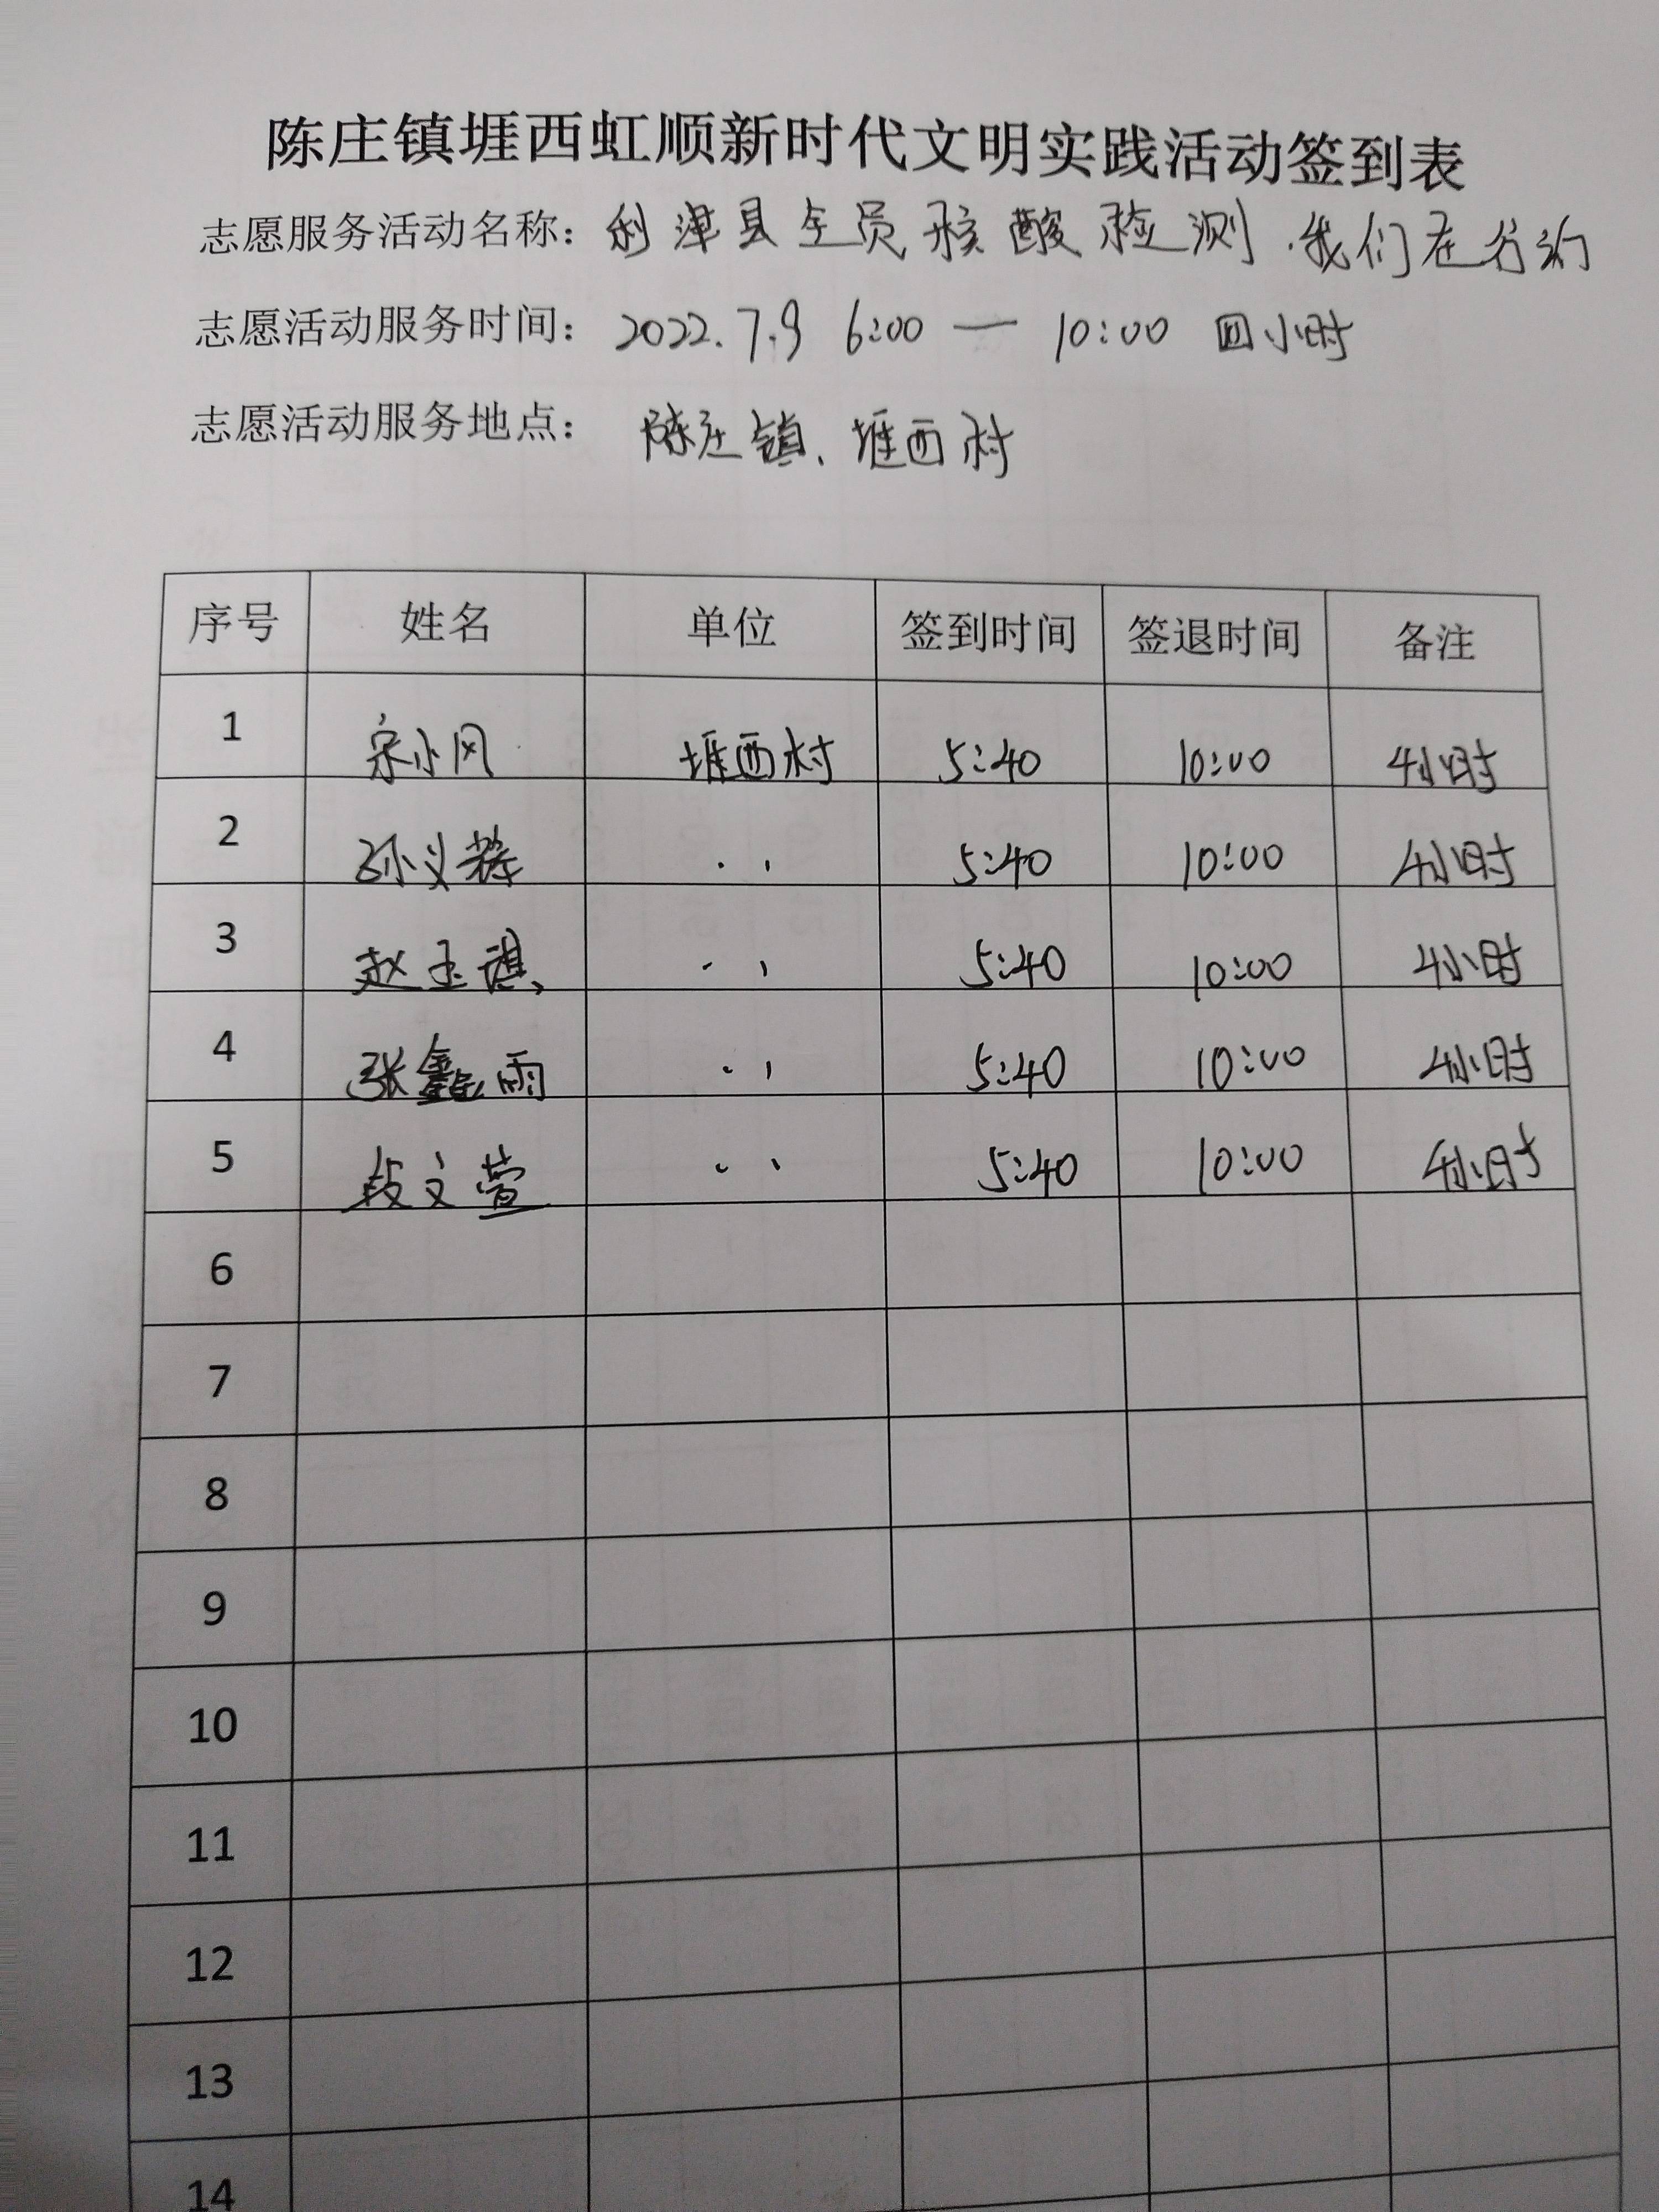 陈庄镇堐西虹顺新时代文明实践活动签到表
志愿服务活动名称：利津县全员核酸检测.我们在行动
志愿活动服务时间：2022.7.9 6:00 — 10:00 四小时
志愿活动服务地点：陈庄镇、堐西村
序号 姓名 单位 签到时间 签退时间 备注
1 宋小风 堐西村 5:40 10:00 4小时
2 孙义 〃 5:40 10:00 4小时
3 赵玉 〃 5:40 10:00 4小时
4 张鑫雨 〃 5:40 10:00 4小时
5 段文萱 〃 5:40 10:00 4小时
6
7
8
9
10
11
12
13
14